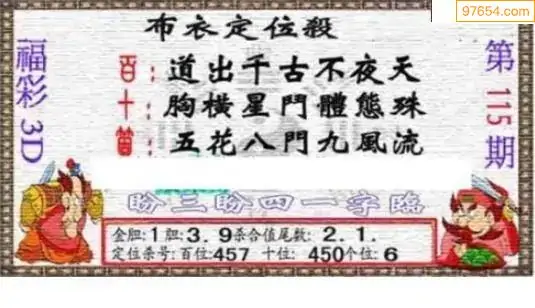 97654.com
布衣定位殺
福彩3D
第115期
百：道出千古不夜天
十：胸橫星門體態珠
笛：五花八門九風流
盼三盼四一字臨
金胆:1胆:3.9杀合值尾数:2.1.
定位杀号:百位:457 十位:450个位:6